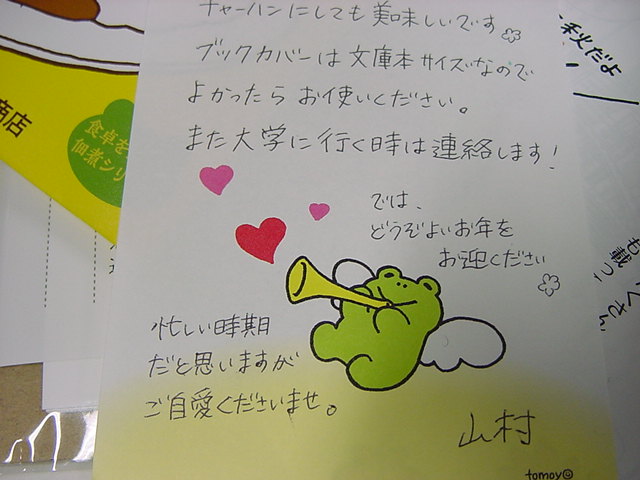 チャーハンにしても美味しいです
ブックカバーは文庫本サイズなので
よかったら お使いください。
また大学に行く時は連絡します!
では、
どうぞよいお年を
お迎えください
忙しい時期
だと思いますが
ご自愛くださいませ。
山村
tomoy
商店
食卓を
佃煮シリ
秋だよ
も載っ
くさん